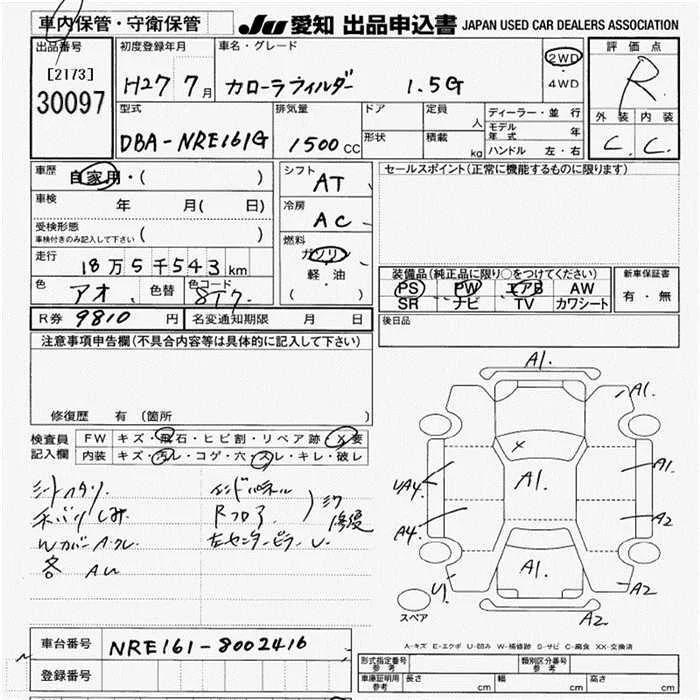 車内保管・守衛保管
JU 愛知 出品申込書 JAPAN USED CAR DEALERS ASSOCIATION
出品番号
[2173]
30097
初度登録年月
H27 7月
車名・グレード
カローラフィルダー 1.5G
2WD
・
4WD
評価点
R
外装 内装
C. C.
型式
DBA-NRE161G
排気量
1500 CC
ドア
形状
定員 人
積載 kg
ディーラー・並行
モデル年式 年
ハンドル 左・右
車歴
自家用・( )
車検
年 月( 日)
受検形態
車検付きのみ記入して下さい ( )
走行
18万5千543km
色
アオ 色替
色コード
8T7
シフト
AT
冷房
AC
燃料
ガソリン
軽・油
( )
セールスポイント(正常に機能するものに限ります)
装備品(純正品に限り○をつけてください)
PS PW エアB AW
SR ナビ TV カワシート
新車保証書
有・無
後日品
R券 9810 円 名変通知期限 月 日
注意事項申告欄(不具合内容等は具体的に記入して下さい)
修復歴 有 (箇所 )
検査員
記入欄
FW キズ・飛石・ヒビ割・リペア跡・X要
内装 キズ・汚レ・コゲ・穴・スレ・キレ・破レ
シートヘタリ
チバリしみ
Wカバー A・クレ
各 AU
エンドパネル
Rフロア
左センターピラー
修復
A1.
A1.
A1.
A1.
A2
A2
A2
A1.
UA4.
A4.
U1
X
スペア
A-キズ E-エクボ U-凹み W-補修跡 S-サビ C-腐食 XX-交換済
車台番号 NRE161-8002416
登録番号
形式指定番号 参考
類別区分番号 参考
車庫証明用 参考
長さ cm 幅 cm 高さ cm